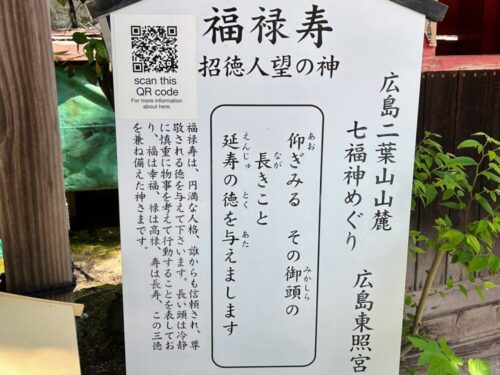 福禄寿
招徳人望の神
scan this
QR code
For more information
about here.
広島二葉山山麓
七福神めぐり 広島東照宮
仰ぎみる その御頭の
あお みかしら
長きこと
なが
延寿の徳を与えまします
えんじゅ とく あた
福禄寿は、円満な人格、誰からも信頼され、尊
敬される徳を与えて下さいます。長い頭は冷静
に慎重に物事を考えて行動することを表してお
り、福は幸福、禄は高禄、寿は長寿、この三徳
を兼ね備えた神さまです。